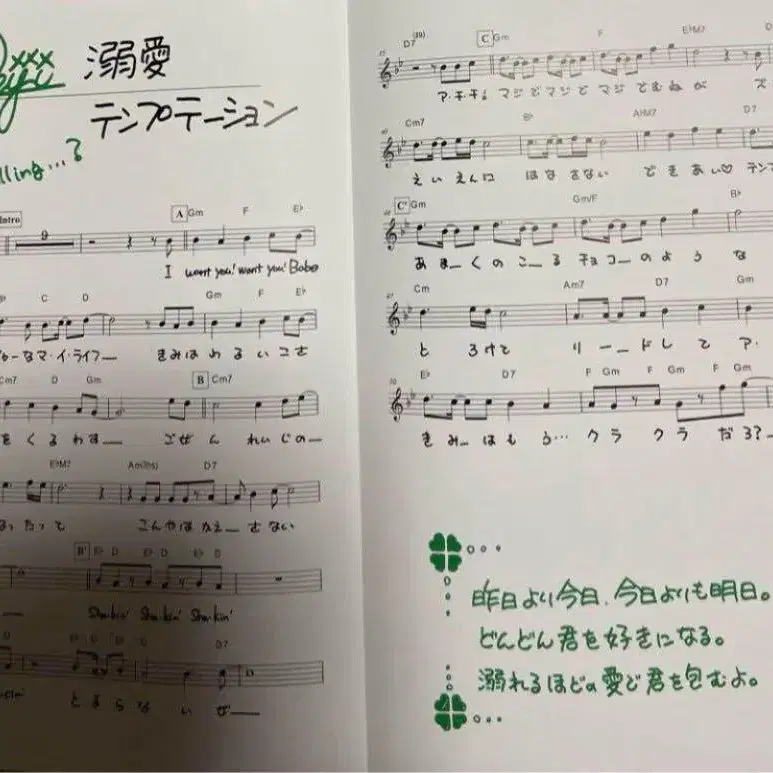 溺愛
テンプテーション
lling...?
Intro
9
A Gm F E♭
I want you! want you! Babe
C D Gm F E♭
なマ・イ・ライフー きみはわるいこさ
Cm7 D Gm B Cm7
をくるわすー ごぜんれいじのー
E♭M7 Am7(♭5) D7
たって こんやはかえーさない
B' E♭ D E♭ D E♭ D
Shakin' Shakin' Shakin'
D E♭ D E♭ D D7
とまらないぜー
D7(♭9) C Gm F E♭M7 D
ア・チ・チ! マジでマジでマジでむねが ズ
Cm7 B♭ A♭M7 D7
えいえんに はなさない できあい♡ テンプ
C' Gm Gm/F B♭
あまーくのこーる チョコーのような
Cm Am7 D7 Gm
とろけて リーードして ア・
E♭ D7 F Gm F Gm F Gm
きみーはもう… クラクラだろ?ー
昨日より今日、今日よりも明日。
どんどん君を好きになる。
溺れるほどの愛で君を包むよ。